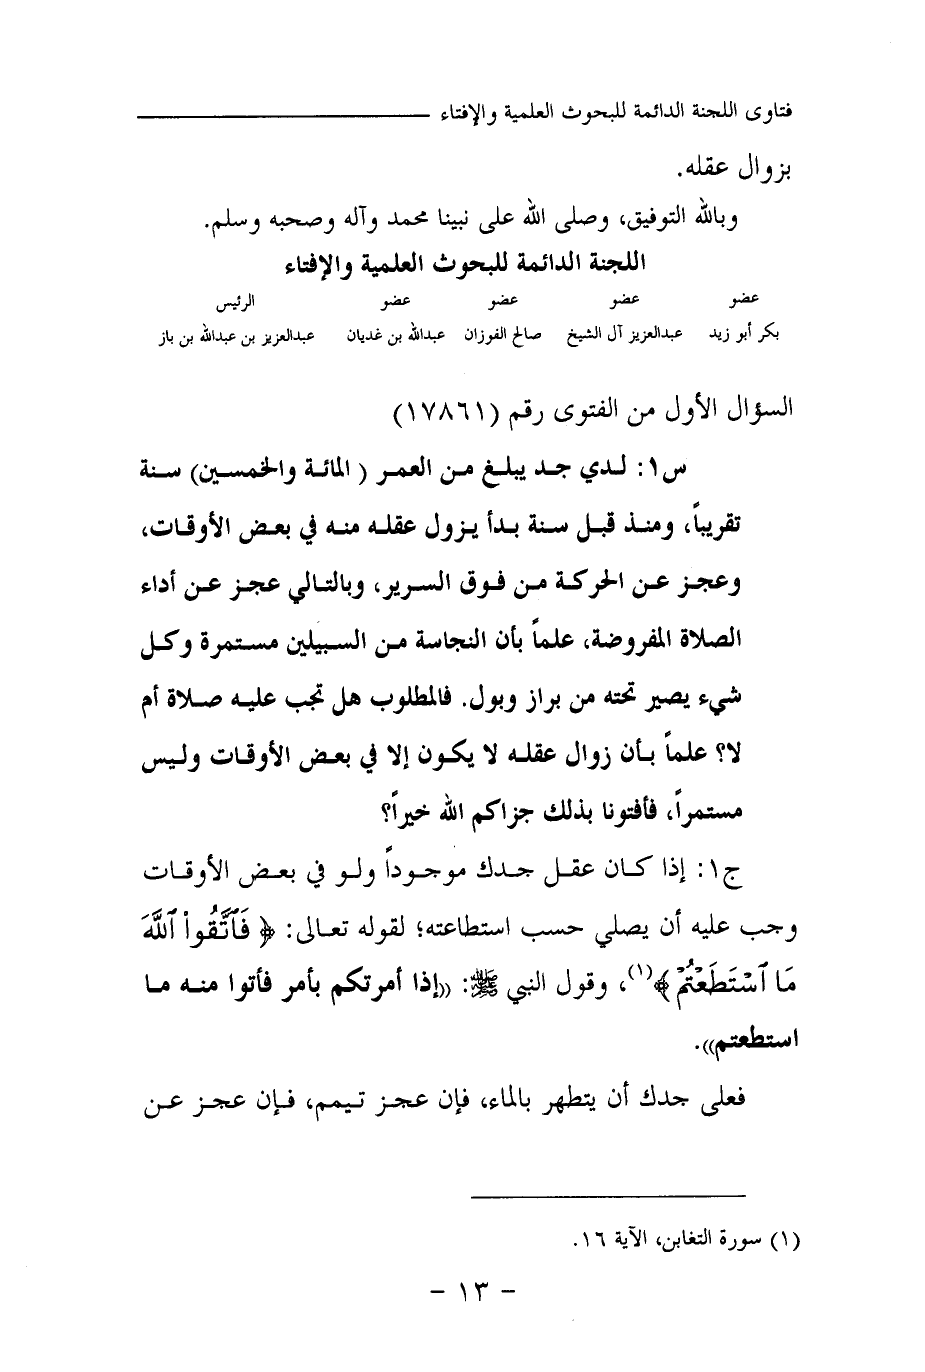 فتاوى اللجنة الدائمة للبحوث العلمية والإفتاء
بزوال عقله.
وبالله التوفيق، وصلى الله على نبينا محمد وآله وصحبه وسلم.
اللجنة الدائمة للبحوث العلمية والإفتاء
عضو عضو عضو عضو الرئيس
بكر أبو زيد عبدالعزيز آل الشيخ صالح الفوزان عبدالله بن غديان عبدالعزيز بن عبدالله بن باز
السؤال الأول من الفتوى رقم (١٧٨٦١)
س١: لدي جد يبلغ من العمر ( المائة والخمسين) سنة
تقريباً، ومنذ قبل سنة بدأ يزول عقله منه في بعض الأوقات،
وعجز عن الحركة من فوق السرير، وبالتالي عجز عن أداء
الصلاة المفروضة، علماً بأن النجاسة من السبيلين مستمرة وكل
شيء يصير تحته من براز وبول. فالمطلوب هل تجب عليه صلاة أم
لا؟ علماً بأن زوال عقله لا يكون إلا في بعض الأوقات وليس
مستمراً، فأفتونا بذلك جزاكم الله خيراً؟
ج١: إذا كان عقل جدك موجوداً ولو في بعض الأوقات
وجب عليه أن يصلي حسب استطاعته؛ لقوله تعالى: ﴿ فَٱتَّقُوا۟ ٱللَّهَ
مَا ٱسْتَطَعْتُمْ ﴾(١)، وقول النبي ﷺ: ((إذا أمرتكم بأمر فأتوا منه ما
استطعتم)).
فعلى جدك أن يتطهر بالماء، فإن عجز تيمم، فإن عجز عن
(١) سورة التغابن، الآية ١٦.
- ١٣ -